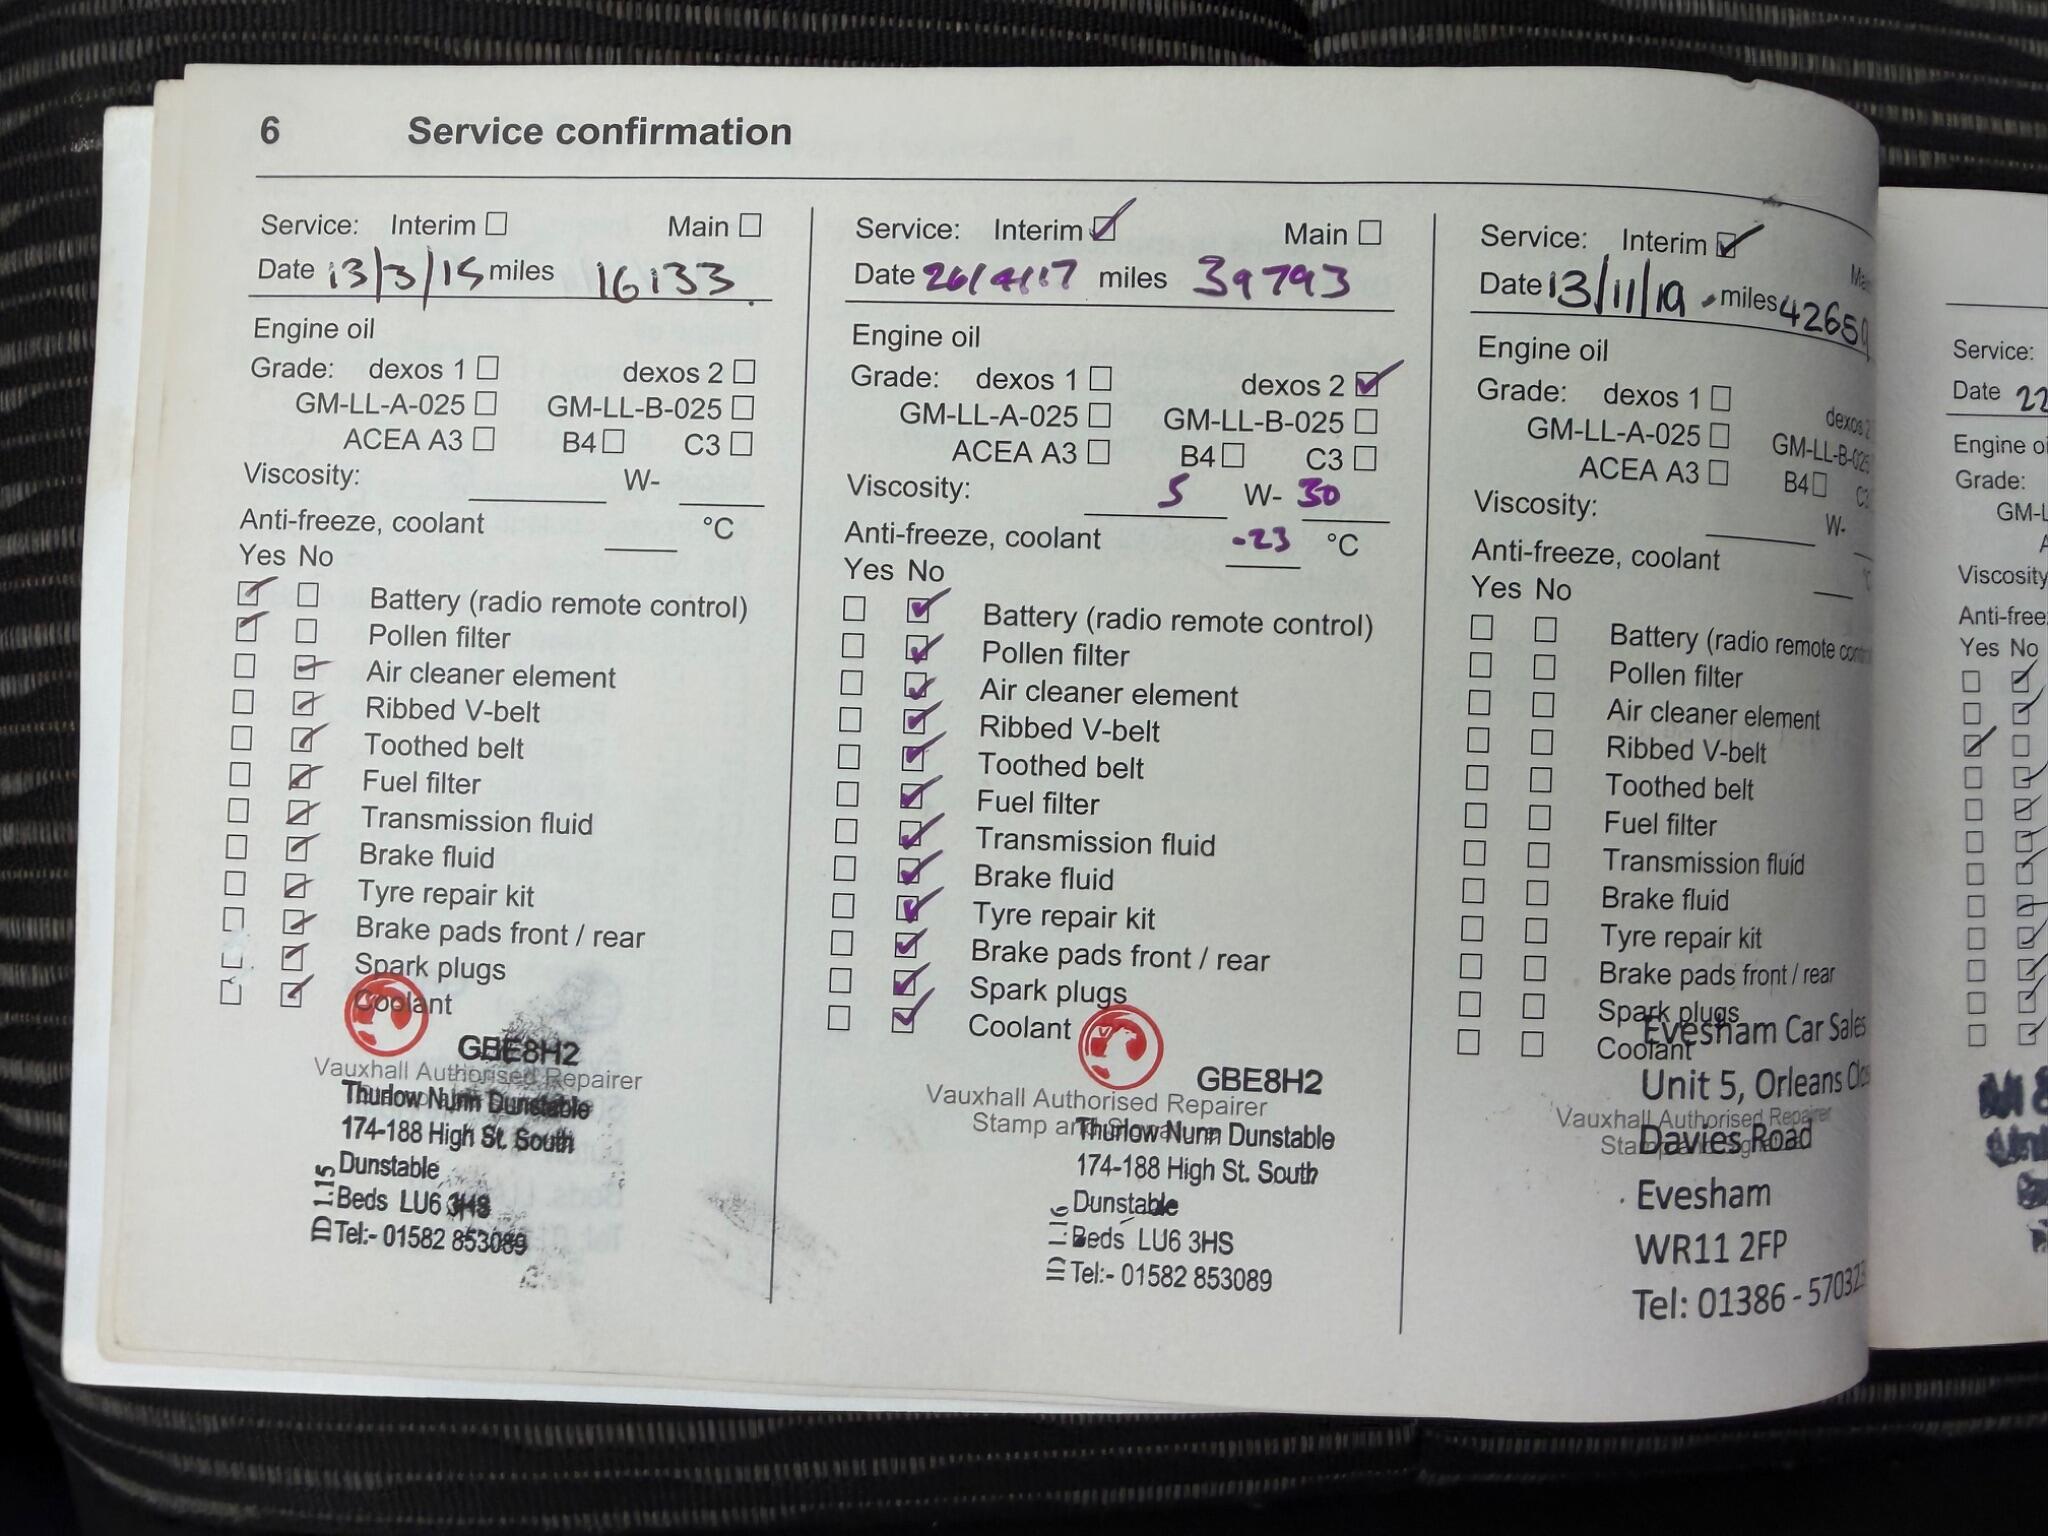 6 Service confirmation
Service: Interim Main
Date 13/3/15 miles 16133
Engine oil
Grade: dexos 1 dexos 2
GM-LL-A-025 GM-LL-B-025
ACEA A3 B4 C3
Viscosity: W-
Anti-freeze, coolant °C
Yes No
Battery (radio remote control)
Pollen filter
Air cleaner element
Ribbed V-belt
Toothed belt
Fuel filter
Transmission fluid
Brake fluid
Tyre repair kit
Brake pads front / rear
Spark plugs
Coolant
GBE8H2
Vauxhall Authorised Repairer
Thurlow Nunn Dunstable
174-188 High St. South
Dunstable
Beds LU6 3HS
Tel:- 01582 853089
ID 1.15
Service: Interim Main
Date 26/4/17 miles 39793
Engine oil
Grade: dexos 1 dexos 2
GM-LL-A-025 GM-LL-B-025
ACEA A3 B4 C3
Viscosity: 5 W- 30
Anti-freeze, coolant -23 °C
Yes No
Battery (radio remote control)
Pollen filter
Air cleaner element
Ribbed V-belt
Toothed belt
Fuel filter
Transmission fluid
Brake fluid
Tyre repair kit
Brake pads front / rear
Spark plugs
Coolant
GBE8H2
Vauxhall Authorised Repairer
Stamp and
Thurlow Nunn Dunstable
174-188 High St. South
Dunstable
Beds LU6 3HS
Tel:- 01582 853089
Service: Interim
Date 13/11/19 miles 42659
Engine oil
Grade: dexos 1 dexos 2
GM-LL-A-025 GM-LL-B-025
ACEA A3 B4
Viscosity: W-
Anti-freeze, coolant
Yes No
Battery (radio remote
Pollen filter
Air cleaner element
Ribbed V-belt
Toothed belt
Fuel filter
Transmission fluid
Brake fluid
Tyre repair kit
Brake pads front / rear
Spark plugs
Coolant
Evesham Car Sales
Unit 5, Orleans
Vauxhall Authorised Repairer
Davies Road
Evesham
WR11 2FP
Tel: 01386 - 570323
Service:
Date 22
Engine
Grade:
Viscosity
Yes No